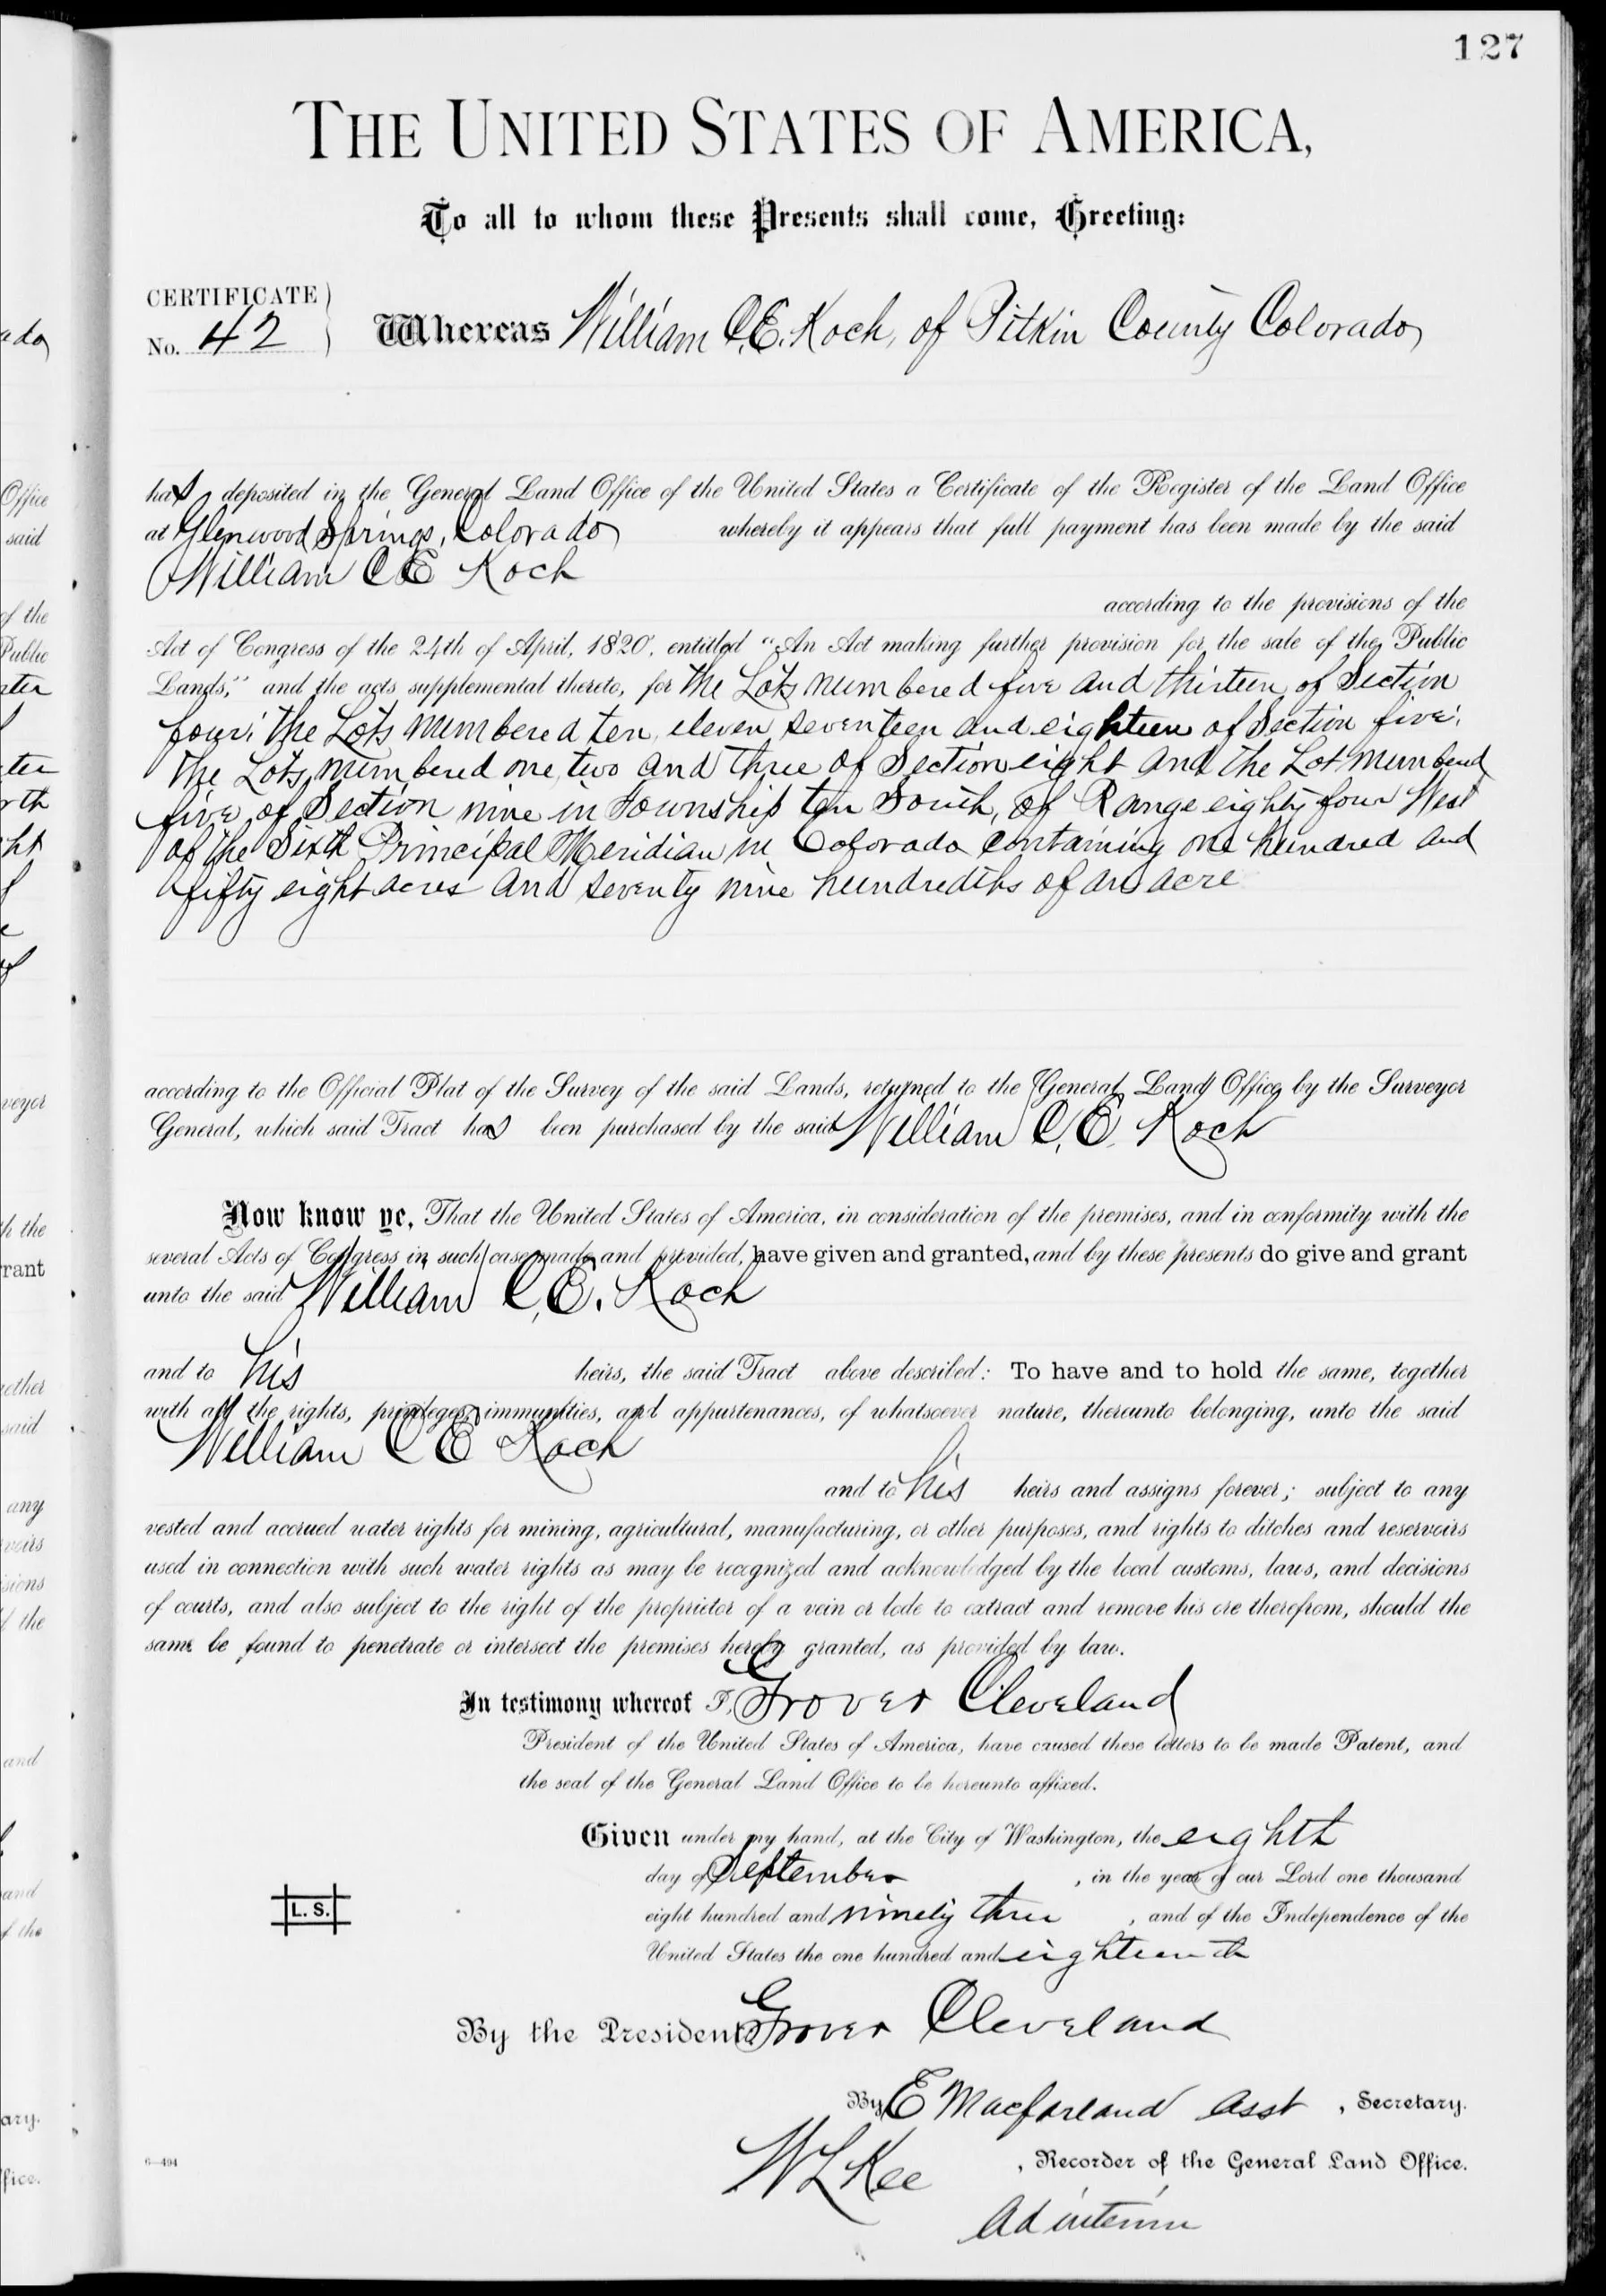 127
THE UNITED STATES OF AMERICA,
To all to whom these Presents shall come, Greeting:
CERTIFICATE
No. 42
Whereas William C.E. Koch, of Pitkin County Colorado
has deposited in the General Land Office of the United States a Certificate of the Register of the Land Office
at Glenwood Springs, Colorado whereby it appears that full payment has been made by the said
William C E Koch
according to the provisions of the
Act of Congress of the 24th of April, 1820, entitled "An Act making further provision for the sale of the Public
Lands," and the acts supplemental thereto, for the Lots numbered five and thirteen of Section
four; the Lots numbered ten, eleven, seventeen and eighteen of Section five;
the Lots numbered one, two and three of Section eight and the Lot numbered
five of Section nine in Township ten South, of Range eighty four West
of the Sixth Principal Meridian in Colorado containing one hundred and
fifty eight acres and seventy nine hundredths of an acre
according to the Official Plat of the Survey of the said Lands, returned to the General Land Office by the Surveyor
General, which said Tract has been purchased by the said William C. E. Koch
Now know ye, That the United States of America, in consideration of the premises, and in conformity with the
several Acts of Congress in such case made and provided, have given and granted, and by these presents do give and grant
unto the said William C. E. Koch
and to his heirs, the said Tract above described: To have and to hold the same, together
with all the rights, privileges, immunities, and appurtenances, of whatsoever nature, thereunto belonging, unto the said
William C E Koch
and to his heirs and assigns forever; subject to any
vested and accrued water rights for mining, agricultural, manufacturing, or other purposes, and rights to ditches and reservoirs
used in connection with such water rights as may be recognized and acknowledged by the local customs, laws, and decisions
of courts, and also subject to the right of the proprietor of a vein or lode to extract and remove his ore therefrom, should the
same be found to penetrate or intersect the premises hereby granted, as provided by law.
In testimony whereof I, Grover Cleveland
President of the United States of America, have caused these letters to be made Patent, and
the seal of the General Land Office to be hereunto affixed.
Given under my hand, at the City of Washington, the eighth
day of September, in the year of our Lord one thousand
eight hundred and ninety three, and of the Independence of the
United States the one hundred and eighteenth
L. S.
By the President: Grover Cleveland
By E Macfarland Asst, Secretary.
W L Kee, Recorder of the General Land Office.
Ad interim
6—494